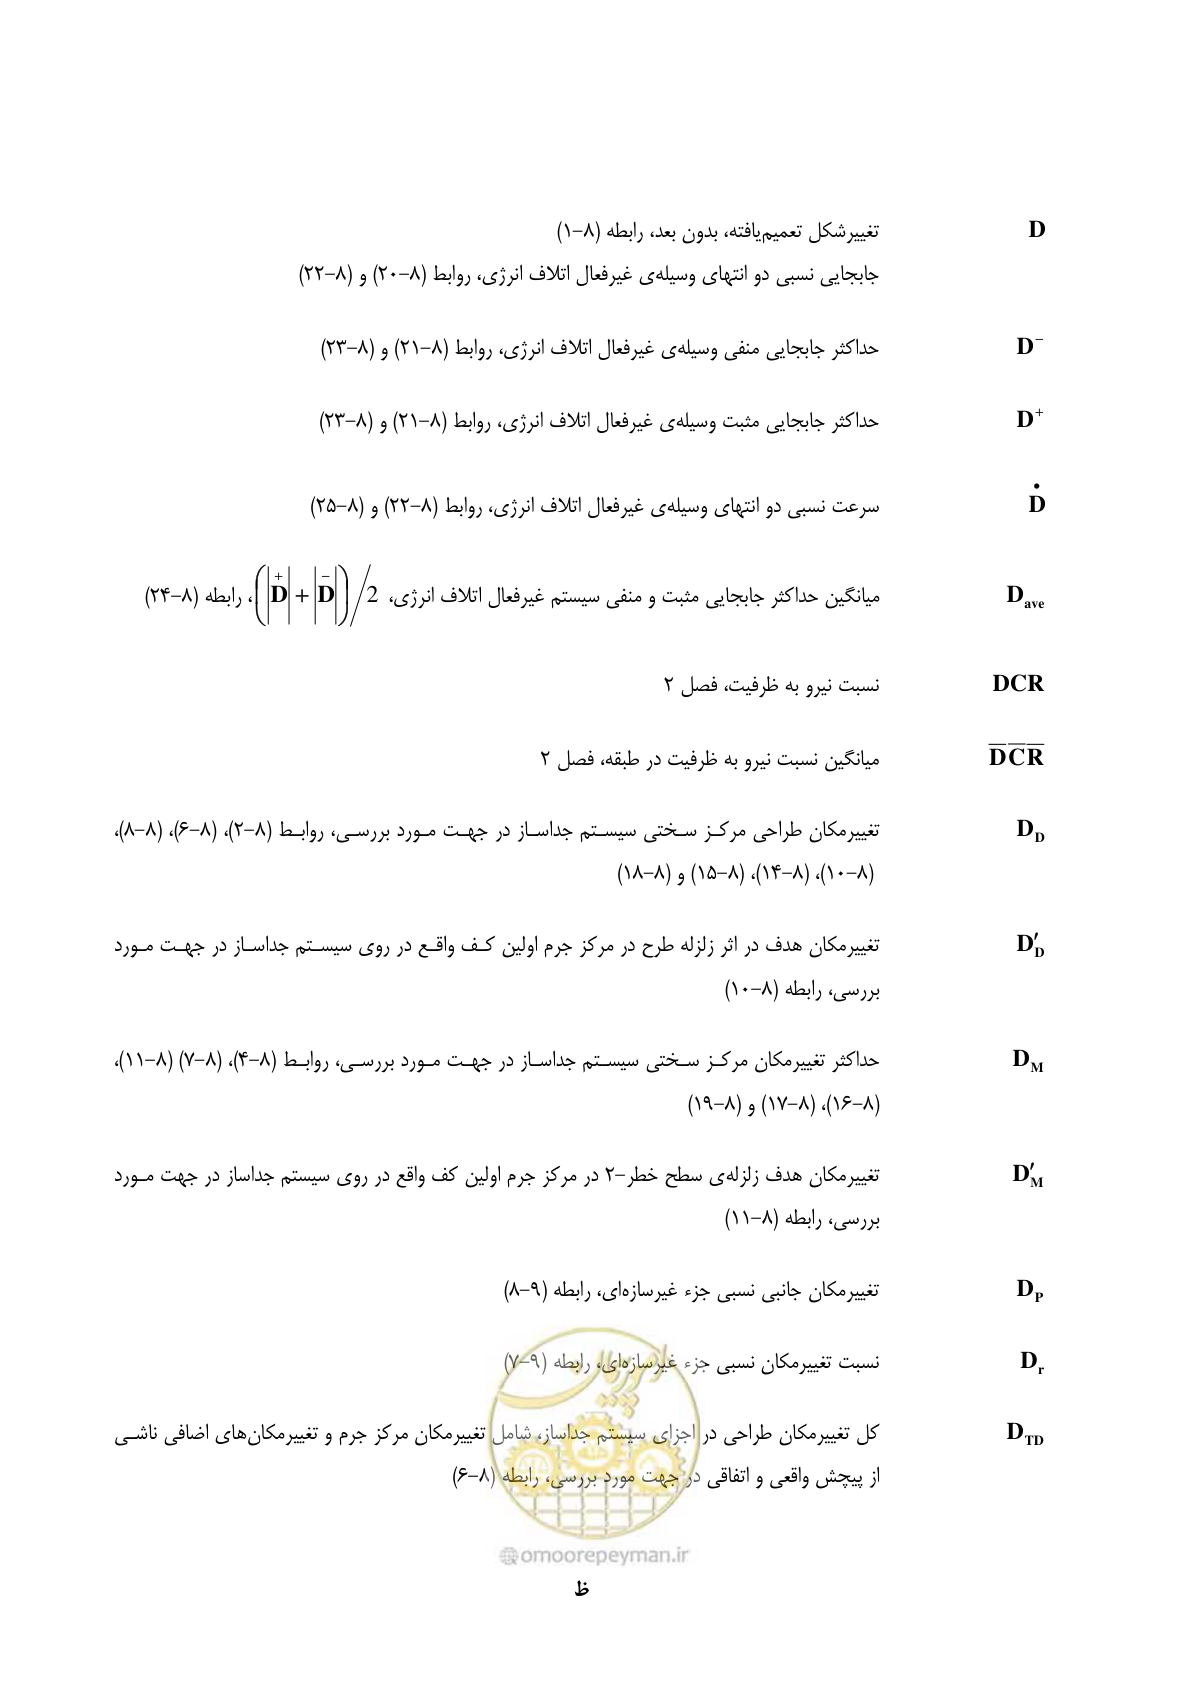 D تغییرشکل تعمیم‌یافته، بدون بعد، رابطه (۸–۱)
جابجایی نسبی دو انتهای وسیله‌ی غیرفعال اتلاف انرژی، روابط (۸–۲۰) و (۸–۲۲)
D⁻ حداکثر جابجایی منفی وسیله‌ی غیرفعال اتلاف انرژی، روابط (۸–۲۱) و (۸–۲۳)
D⁺ حداکثر جابجایی مثبت وسیله‌ی غیرفعال اتلاف انرژی، روابط (۸–۲۱) و (۸–۲۳)
Ḋ سرعت نسبی دو انتهای وسیله‌ی غیرفعال اتلاف انرژی، روابط (۸–۲۲) و (۸–۲۵)
D_ave میانگین حداکثر جابجایی مثبت و منفی سیستم غیرفعال اتلاف انرژی، (|D⁺|+|D⁻|)/2، رابطه (۸–۲۴)
DCR نسبت نیرو به ظرفیت، فصل ۲
D̅C̅R̅ میانگین نسبت نیرو به ظرفیت در طبقه، فصل ۲
D_D تغییرمکان طراحی مرکز سختی سیستم جداساز در جهت مورد بررسی، روابط (۸–۲)، (۸–۶)، (۸–۸)،
(۸–۱۰)، (۸–۱۴)، (۸–۱۵) و (۸–۱۸)
D′_D تغییرمکان هدف در اثر زلزله طرح در مرکز جرم اولین کف واقع در روی سیستم جداساز در جهت مورد
بررسی، رابطه (۸–۱۰)
D_M حداکثر تغییرمکان مرکز سختی سیستم جداساز در جهت مورد بررسی، روابط (۸–۴)، (۸–۷) (۸–۱۱)،
(۸–۱۶)، (۸–۱۷) و (۸–۱۹)
D′_M تغییرمکان هدف زلزله‌ی سطح خطر–۲ در مرکز جرم اولین کف واقع در روی سیستم جداساز در جهت مورد
بررسی، رابطه (۸–۱۱)
D_P تغییرمکان جانبی نسبی جزء غیرسازه‌ای، رابطه (۹–۸)
D_r نسبت تغییرمکان نسبی جزء غیرسازه‌ای، رابطه (۹–۷)
D_TD کل تغییرمکان طراحی در اجزای سیستم جداساز، شامل تغییرمکان مرکز جرم و تغییرمکان‌های اضافی ناشی
از پیچش واقعی و اتفاقی در جهت مورد بررسی، رابطه (۸–۶)
امور پیمان
@omoorepeyman.ir
ظ